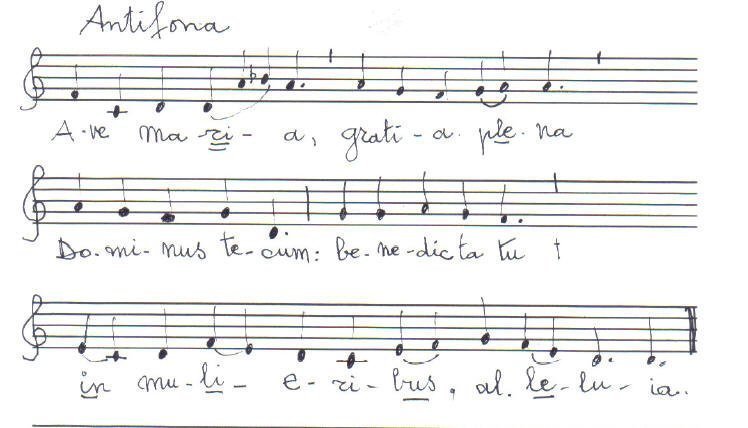 Antifona
A-ve ma-ri-a, grati-a. ple-na
Do-mi-nus te-cum: be-ne-dicta tu †
in mu-li-e-ri-bus, al.le-lu-ia.